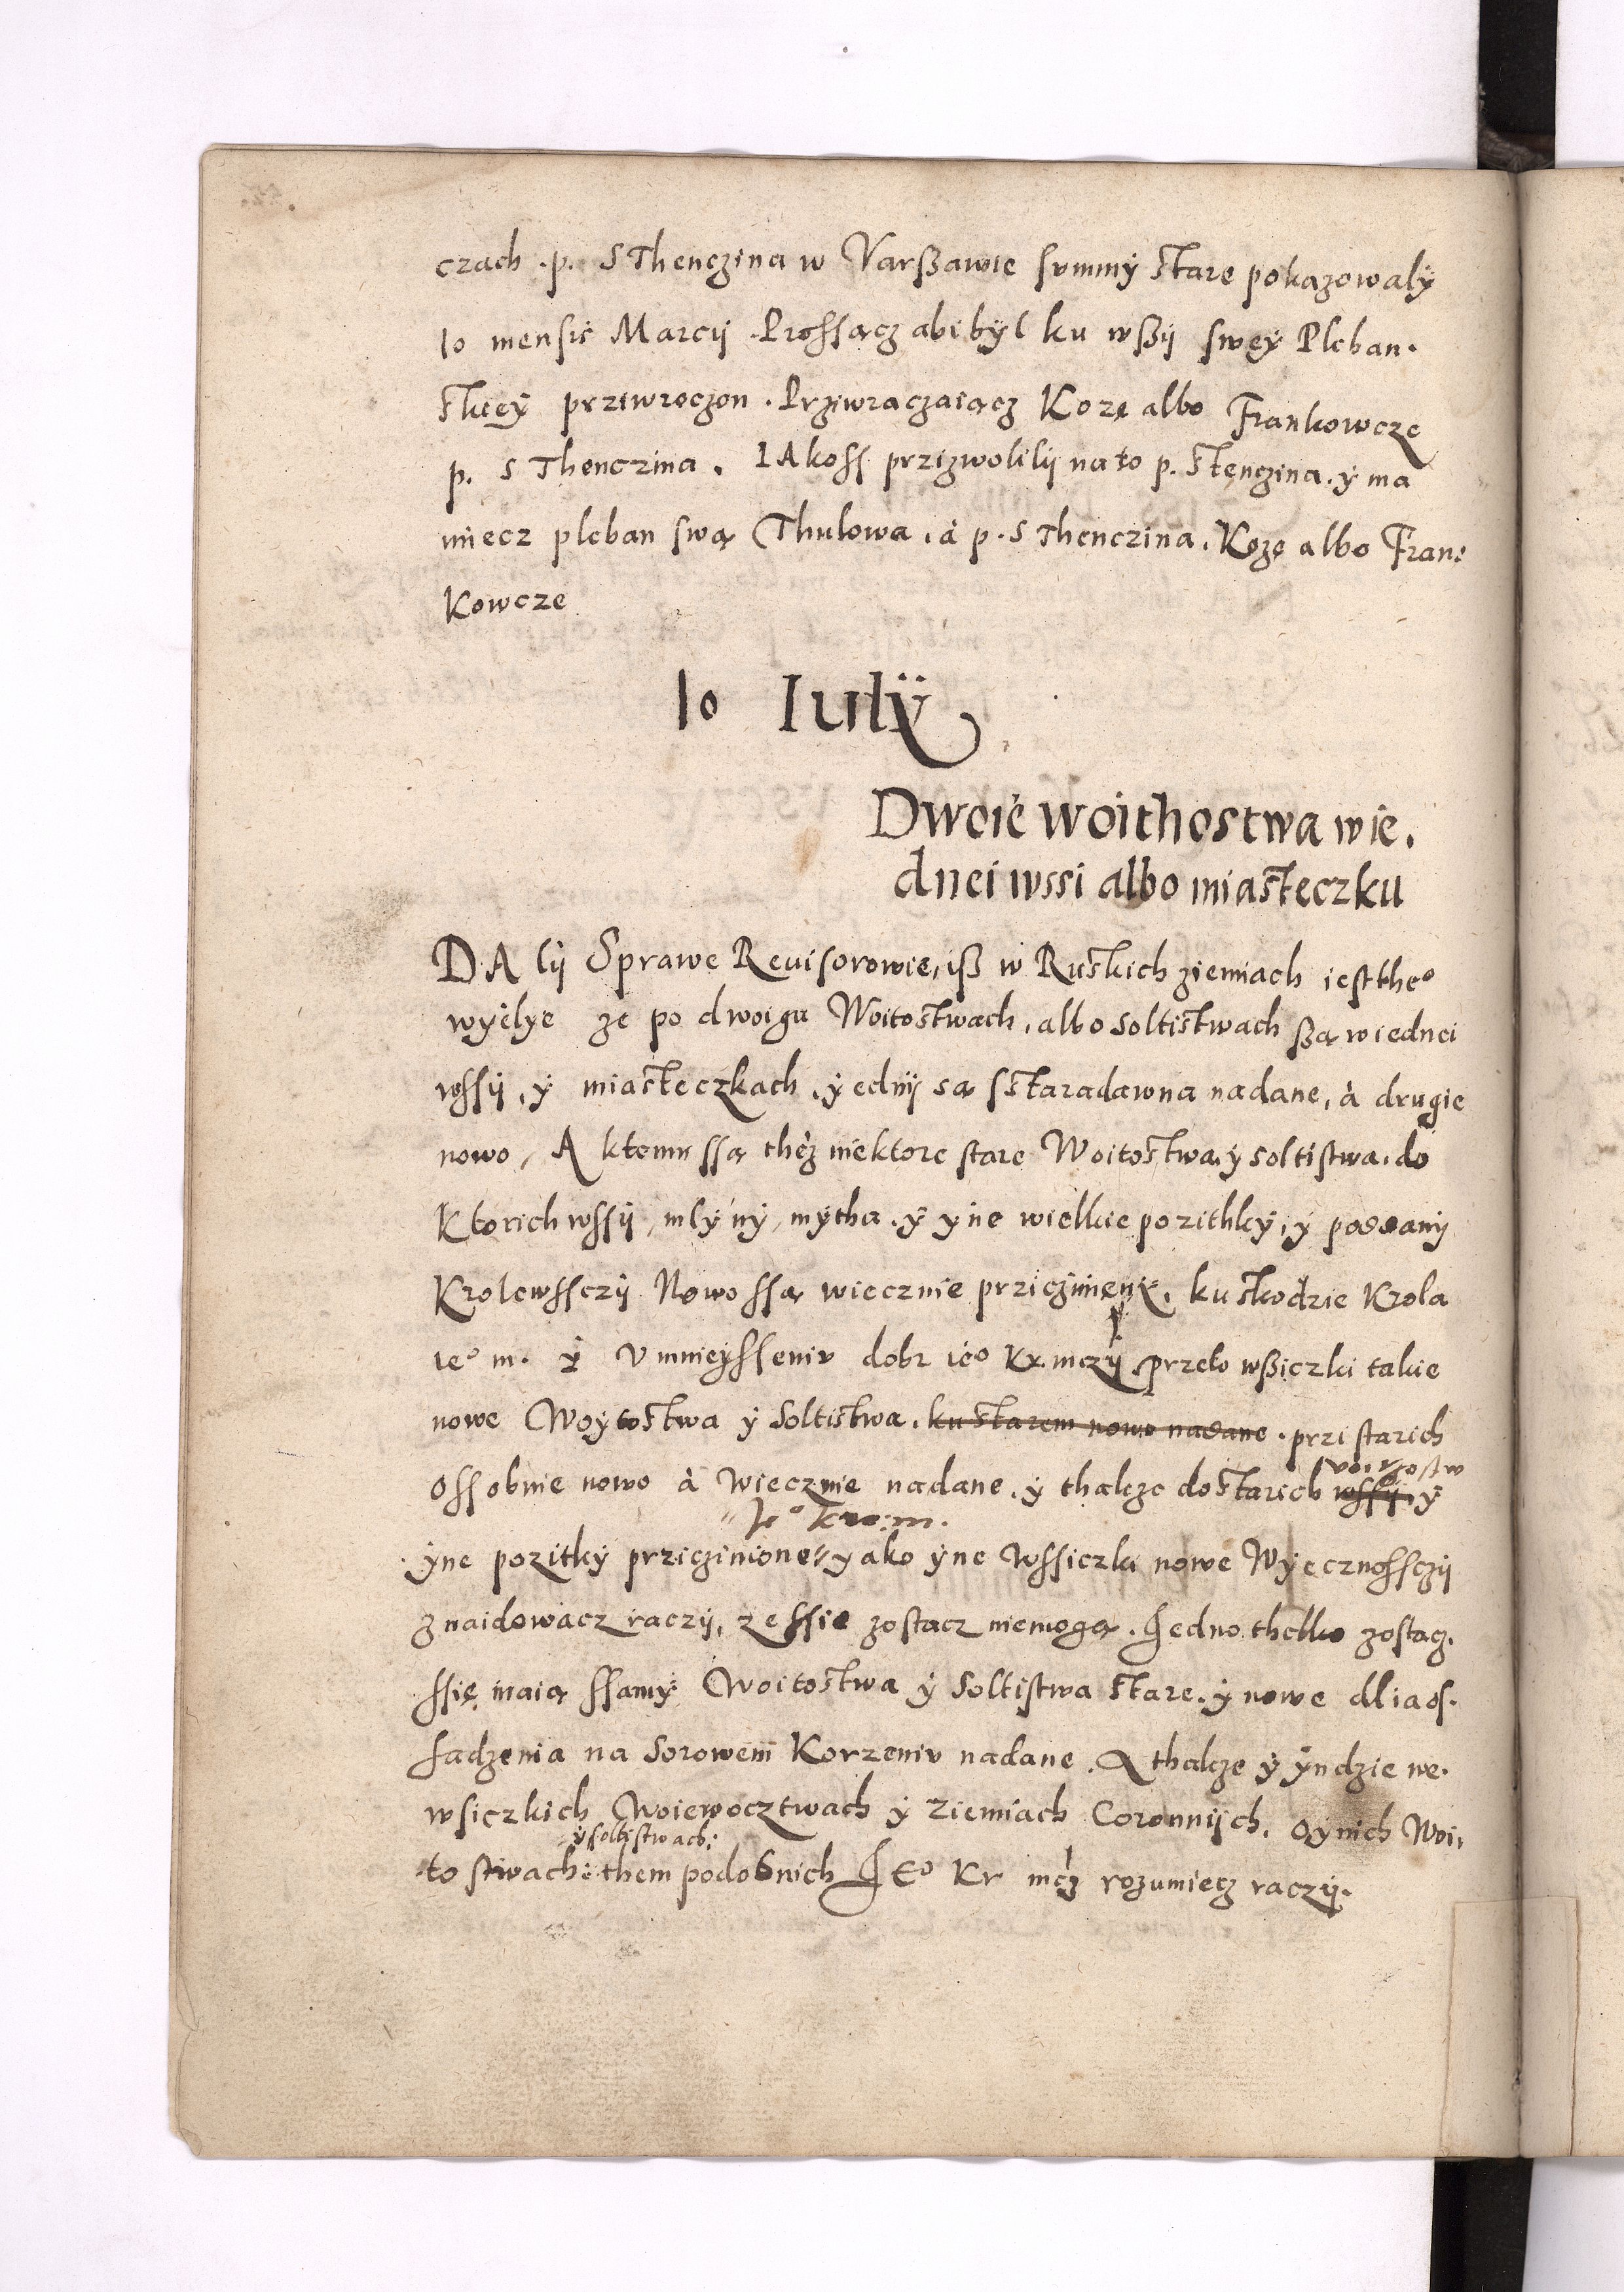 czach .p. SThenczina w Varßawie summÿ stare pokazowalÿ
10 mensis Marcij . Prossącz abi bÿl ku wßij sweÿ Pleban.
skieÿ przÿwroczon . Prziwraczaiącz Kozę albo Frankowczę
p. S Thenczina . IAkoss przizwolilij na to p. Stęnczina . ÿ ma
miecz pleban swą Thulowa . à p. S Thenczina . Kozę albo Fran:
Kowcze
10 Iulÿ
Dwoie woithostwa wie.
dnei wssi albo miasteczku
DA lij Sprawę Reuisorowie, iß w Ruskich ziemiach iest the⁰
wÿelye ze po dwoigu Woitostwach . albo soltistwach ßą wiednei
wssij , ÿ miasteczkach , ÿ ednij są s staradawna nadane , à drugie
nowo , A ktemu ssą thėz niektore stare Woitostwa ÿ soltistwa . do
Ktorich wssij , mlÿnÿ , mÿtha . ÿ yne wielkie pozithkÿ , ÿ poddanij
Krolewssczij Nowo ssą wiecznie prziczinienÿ . ku skodzie Krola
ie⁰ m. ÿ Vmnieÿsseniv dobr ie⁰ Kr. mczij przeto wßiczki takie
nowe Woÿtostwa ÿ Soltistwa . ku starem nowo nadane . przi starich
Ossobnie nowo à Wiecznie nadane . ÿ thakze do starich wssij ÿ
voitostw
Je⁰ kro: m.
ÿne pozitkÿ prziczinione ÿ ako ÿne Wssiczki nowe Wÿecznossczij
znaidowacz raczij , ze ssie zostacz niemogą . Jedno thelko zostacz.
ssię maią ssamÿ Woitostwa ÿ Soltistwa stare . ÿ nowe dlia os.
sadzenia na Sorowem Korzeniv nadane . A thakze ÿ ÿndzie we.
wsiczkich Woiewocztwach ÿ Ziemiach Coronnijch . O ÿnich Woi,
ÿ soltistwach:
to stwach: them podobnich JE⁰ Kr mcz rozumiecz raczij.